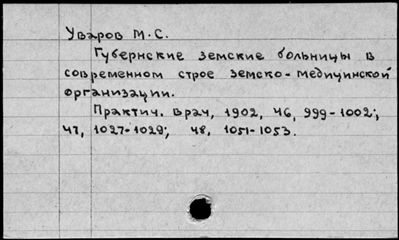 Уваров М.С.
Губернские земские больницы в
современном строе земско-медицинской
организации.
Практич. врач, 1902, 46, 999-1002;
47, 1027-1029; 48, 1051-1053.